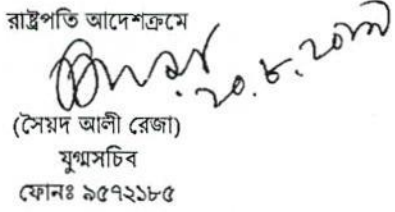 রাষ্ট্রপতি আদেশক্রমে
২০.৮.২০১৭
(সৈয়দ আলী রেজা)
যুগ্মসচিব
ফোনঃ ৯৫৭২১৮৫